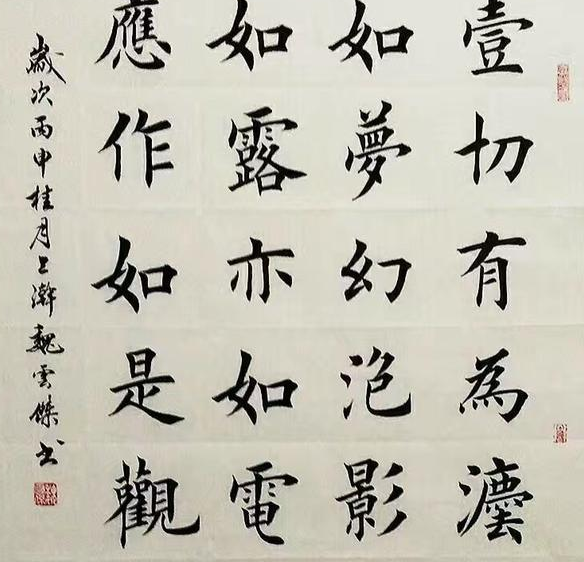 壹切有為灋
如夢幻泡影
如露亦如電
應作如是觀
歲次丙申桂月上澣魏雲傑书